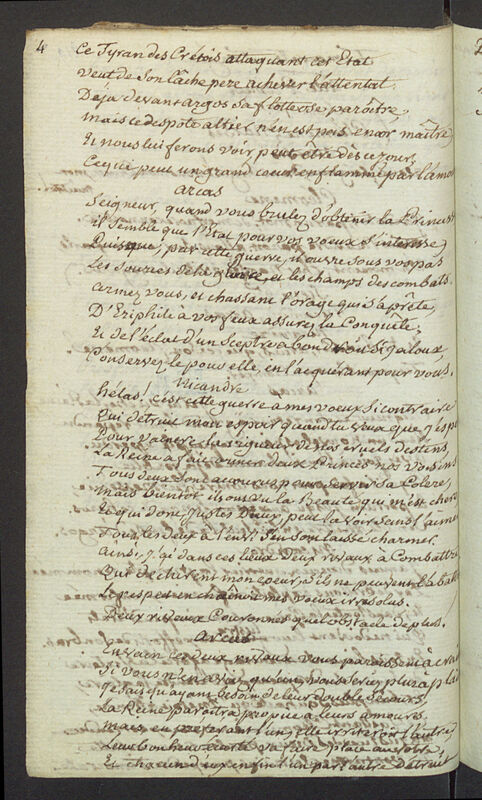 4
Ce Tyran des Crétois attaquant cet Etat
veut de son lâche pere achever l'attentat.
Déja devant argos sa flotte ose paroître,
mais ce despote altier n'en est pas encor maître,
Et nous lui ferons voir peut être dès ce jour,
Ce que peut un grand coeur enflammé par l'amo
arcas
Seigneur, quand vous brulez d'obtenir la Princess
il semble que l'Etat pour vos voeux s'interesse
Puisque, par cette guerre, il ouvre sous vos pas
Les sources de la gloire, et les champs des combats.
armez vous, et chassant l'orage qui s'aprête,
D'Eriphile à vos feux assurez la Conquête,
Et de l'éclat d'un sceptre à bon droit si jaloux,
Conservez le pour elle, en l'acquérant pour vous.
Nicandre
hélas! c'est cette guerre a mes voeux si contraire
Qui détruit mon espoir quand tu veux que j'espe
Pour vaincre la rigueur de nos cruels destins,
La Reine a fait armer deux Princes nos voisins
Tous deux donc accourus pour servir sa Colere,
mais bientot ils ont vu la Beauté qui m'est chere
Et qui donc, justes Dieux, peut la voir sans l'aime
Tous les deux à l'envi s'en sont laissé charmer.
ainsi, j'ai dans ces lieux deux rivaux à Combattre
Qui déchirent mon coeur, s'ils ne peuvent l'abatt
Le respect enchaîne mes voeux irresolus.
Deux rivaux Couronnés quel obstacle de plus.
arcas
En vain ces deux rivaux vous paroissent à crai
Si vous m'en
ayant besoin de leur double secours,
La Reine paroîtra propice a leurs amours
mais en préférant l'un, elle irriteroit l'autre
Leur bonheur va faire place au votre,
Et chacun d'eux enfin l'un par l'autre détruit